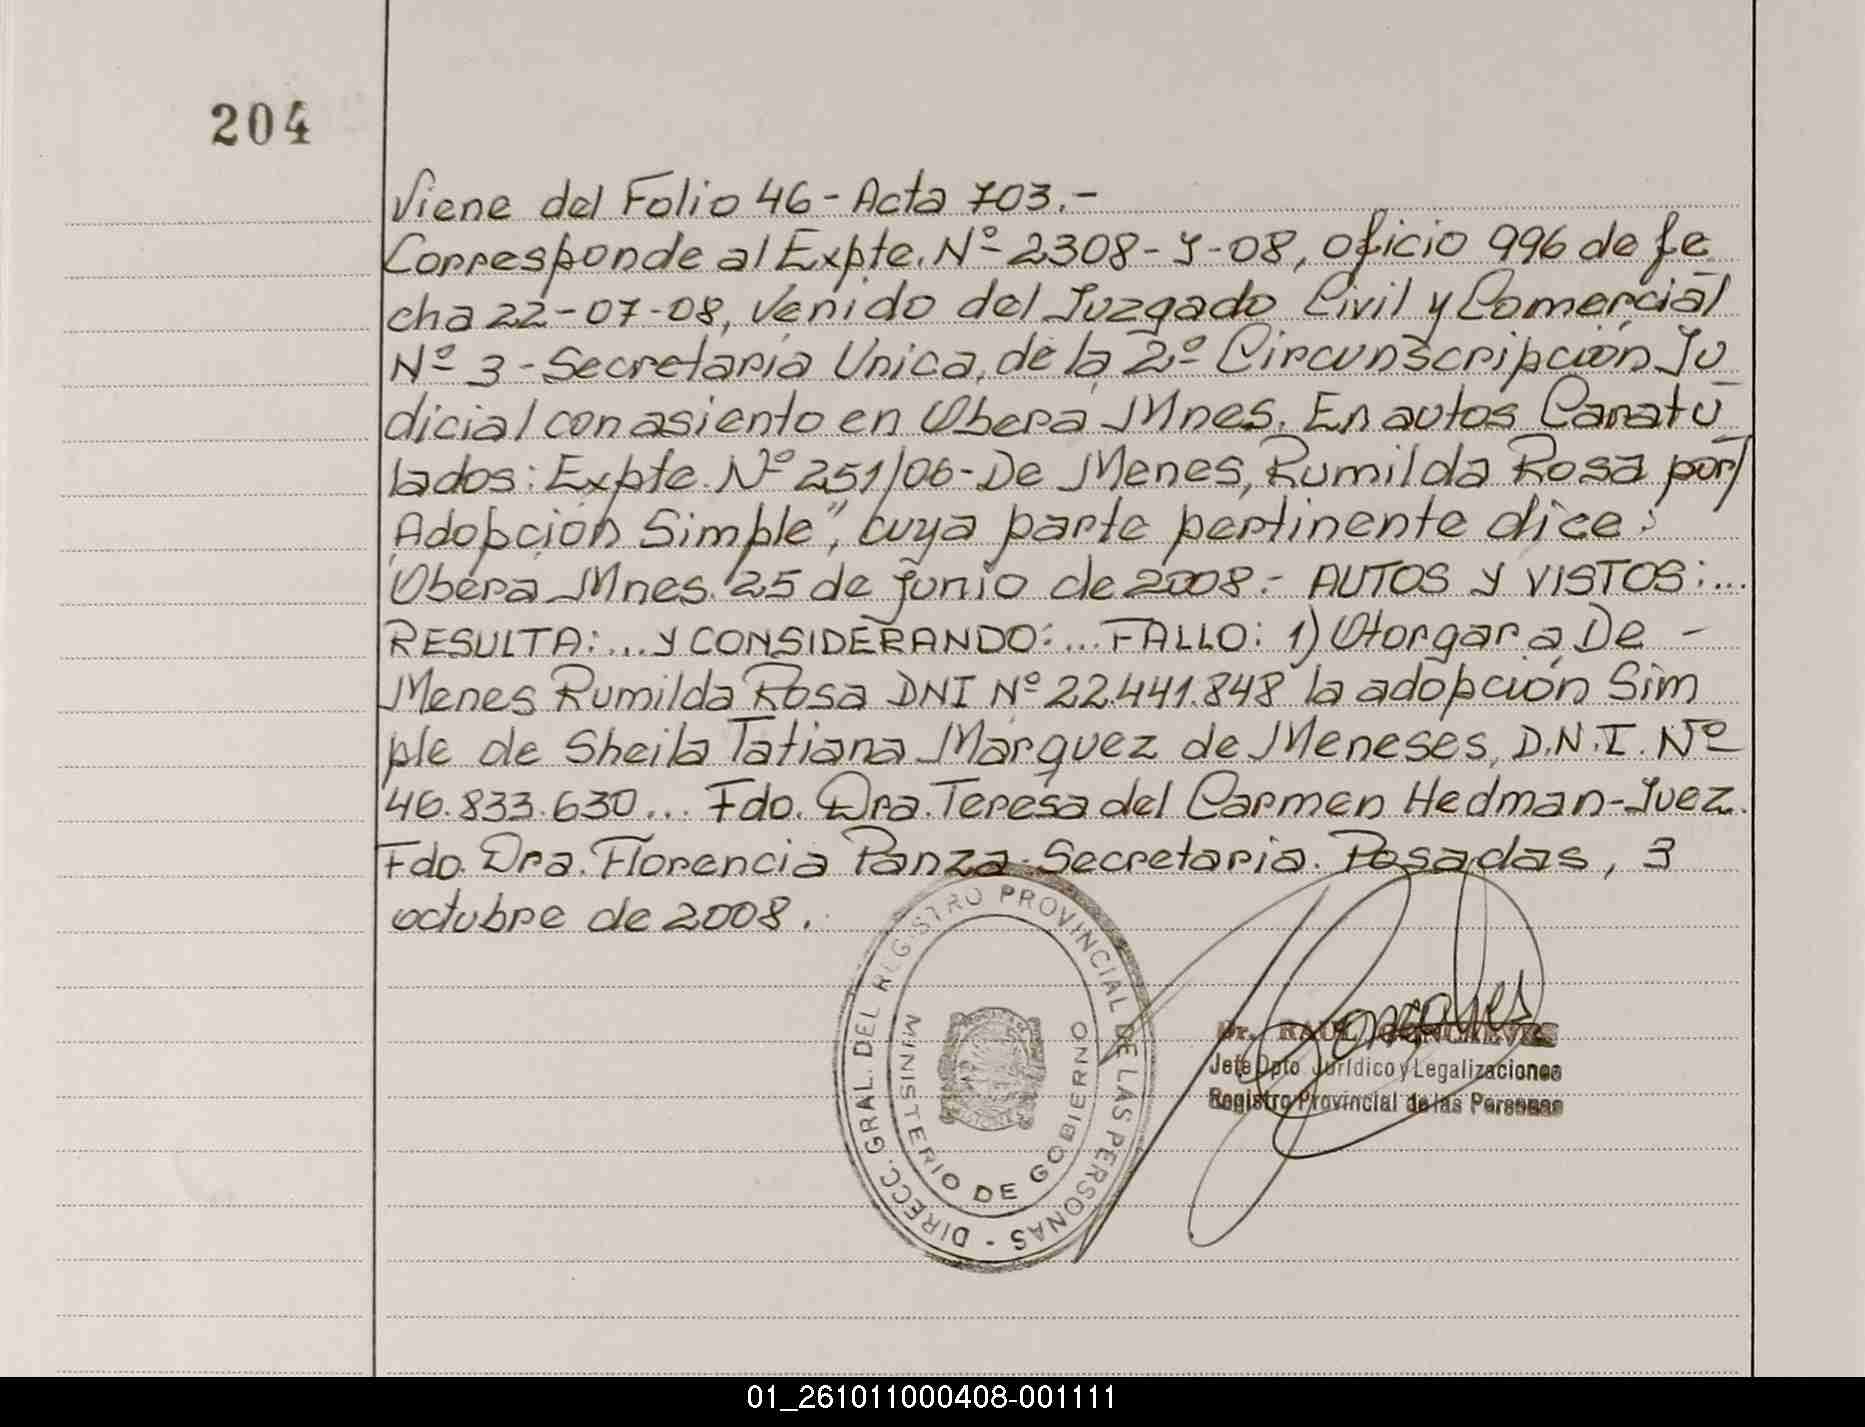 204
Viene del Folio 46 - Acta 703.-
Corresponde al Expte. Nº 2308-J-08, oficio 996 de fe
cha 22-07-08, venido del Juzgado Civil y Comercial
Nº 3 - Secretaria Unica, de la 2º Circunscripción Ju
dicial con asiento en Obera Mnes. En autos Caratu
lados: Expte. Nº 251/06 - De Menes, Rumilda Rosa por/
Adopción Simple", cuya parte pertinente dice:
Obera Mnes. 25 de junio de 2008.- AUTOS Y VISTOS:...
RESULTA:... Y CONSIDERANDO:... FALLO: 1) Otorgar a De -
Menes Rumilda Rosa DNI Nº 22.441.848 la adopción Sim
ple de Sheila Tatiana Marquez de Meneses, D.N.I. Nº
46.833.630... Fdo. Dra. Teresa del Carmen Hedman - Juez.
Fdo. Dra. Florencia Panza - Secretaria. Posadas, 3
octubre de 2008.
DIRECC. GRAL. DEL REGISTRO PROVINCIAL DE LAS PERSONAS -
MINISTERIO DE GOBIERNO
Dr. RAUL GONCALVES
Jefe Dpto. Jurídico y Legalizaciones
Registro Provincial de las Personas
01_261011000408-001111